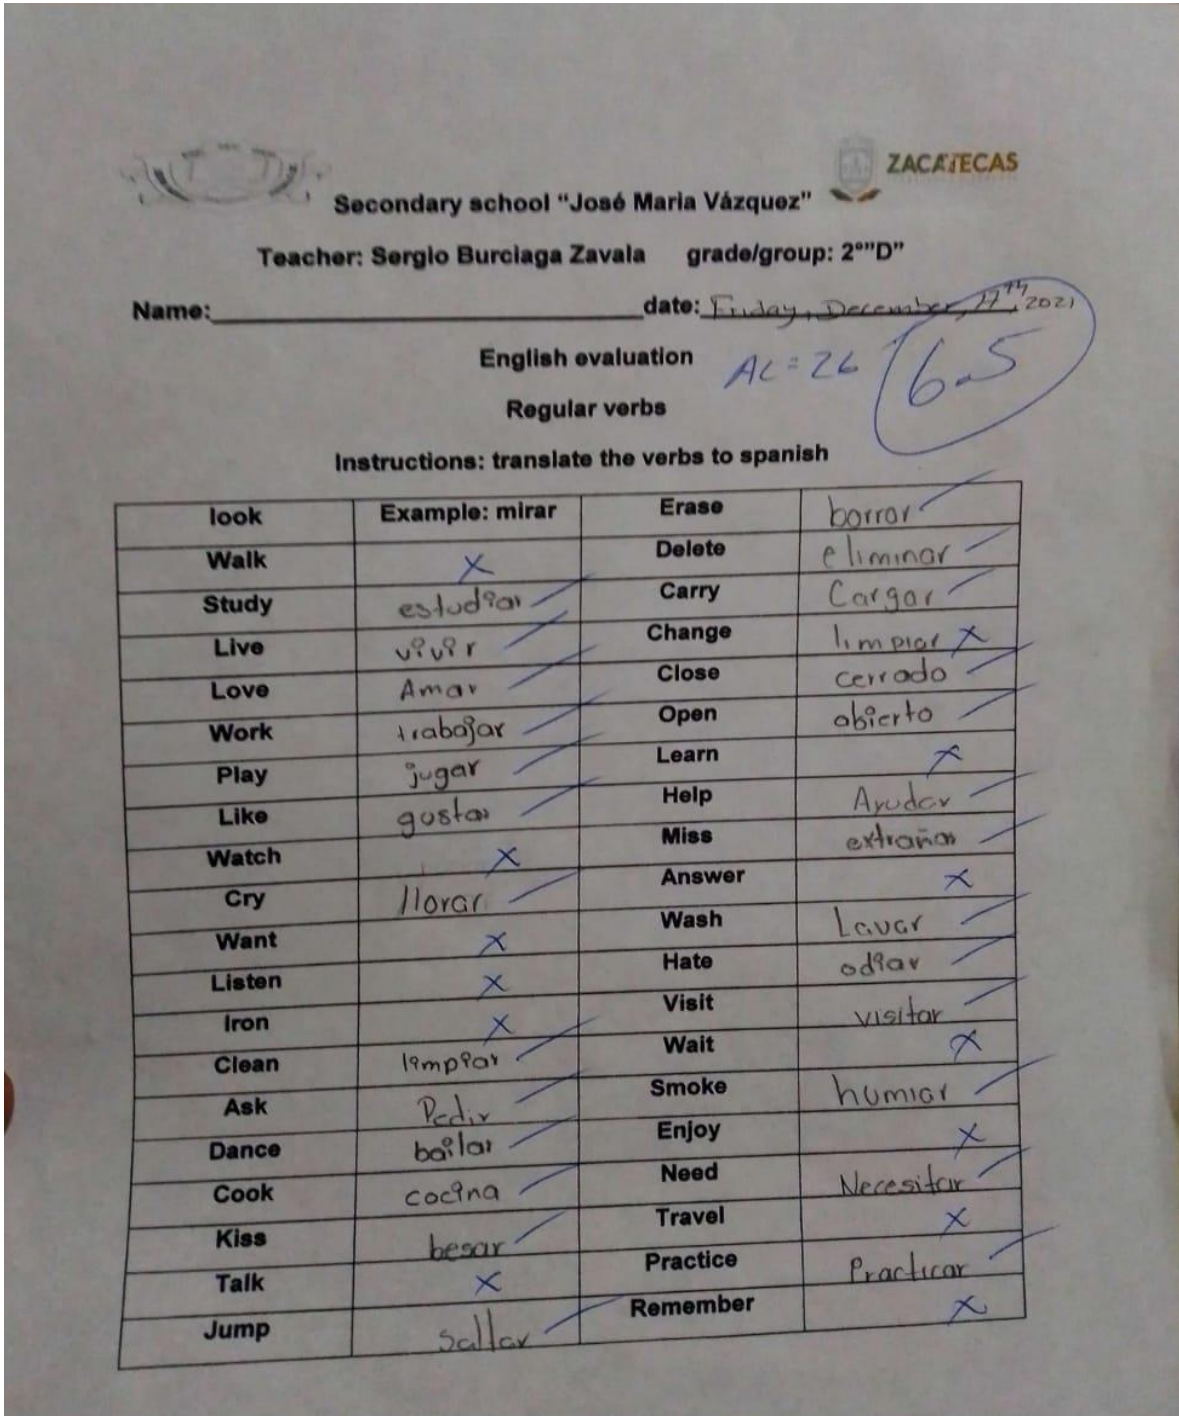 ZACATECAS
Secondary school “José Maria Vázquez”
Teacher: Sergio Burciaga Zavala grade/group: 2°”D”
Name: date: Friday, December, 17th, 2021
English evaluation AC=26 6.5
Regular verbs
Instructions: translate the verbs to spanish
look Example: mirar Erase borrar
Walk X Delete eliminar
Study estudiar Carry Cargar
Live vivir Change limpiar X
Love Amar Close cerrado
Work trabajar Open abierto
Play jugar Learn X
Like gustar Help Ayudar
Watch X Miss extrañar
Cry llorar Answer X
Want X Wash Lavar
Listen X Hate odiar
Iron X Visit visitar
Clean limpiar Wait X
Ask Pedir Smoke humiar
Dance bailar Enjoy X
Cook cocina Need Necesitar
Kiss besar Travel X
Talk X Practice Practicar
Jump saltar Remember X